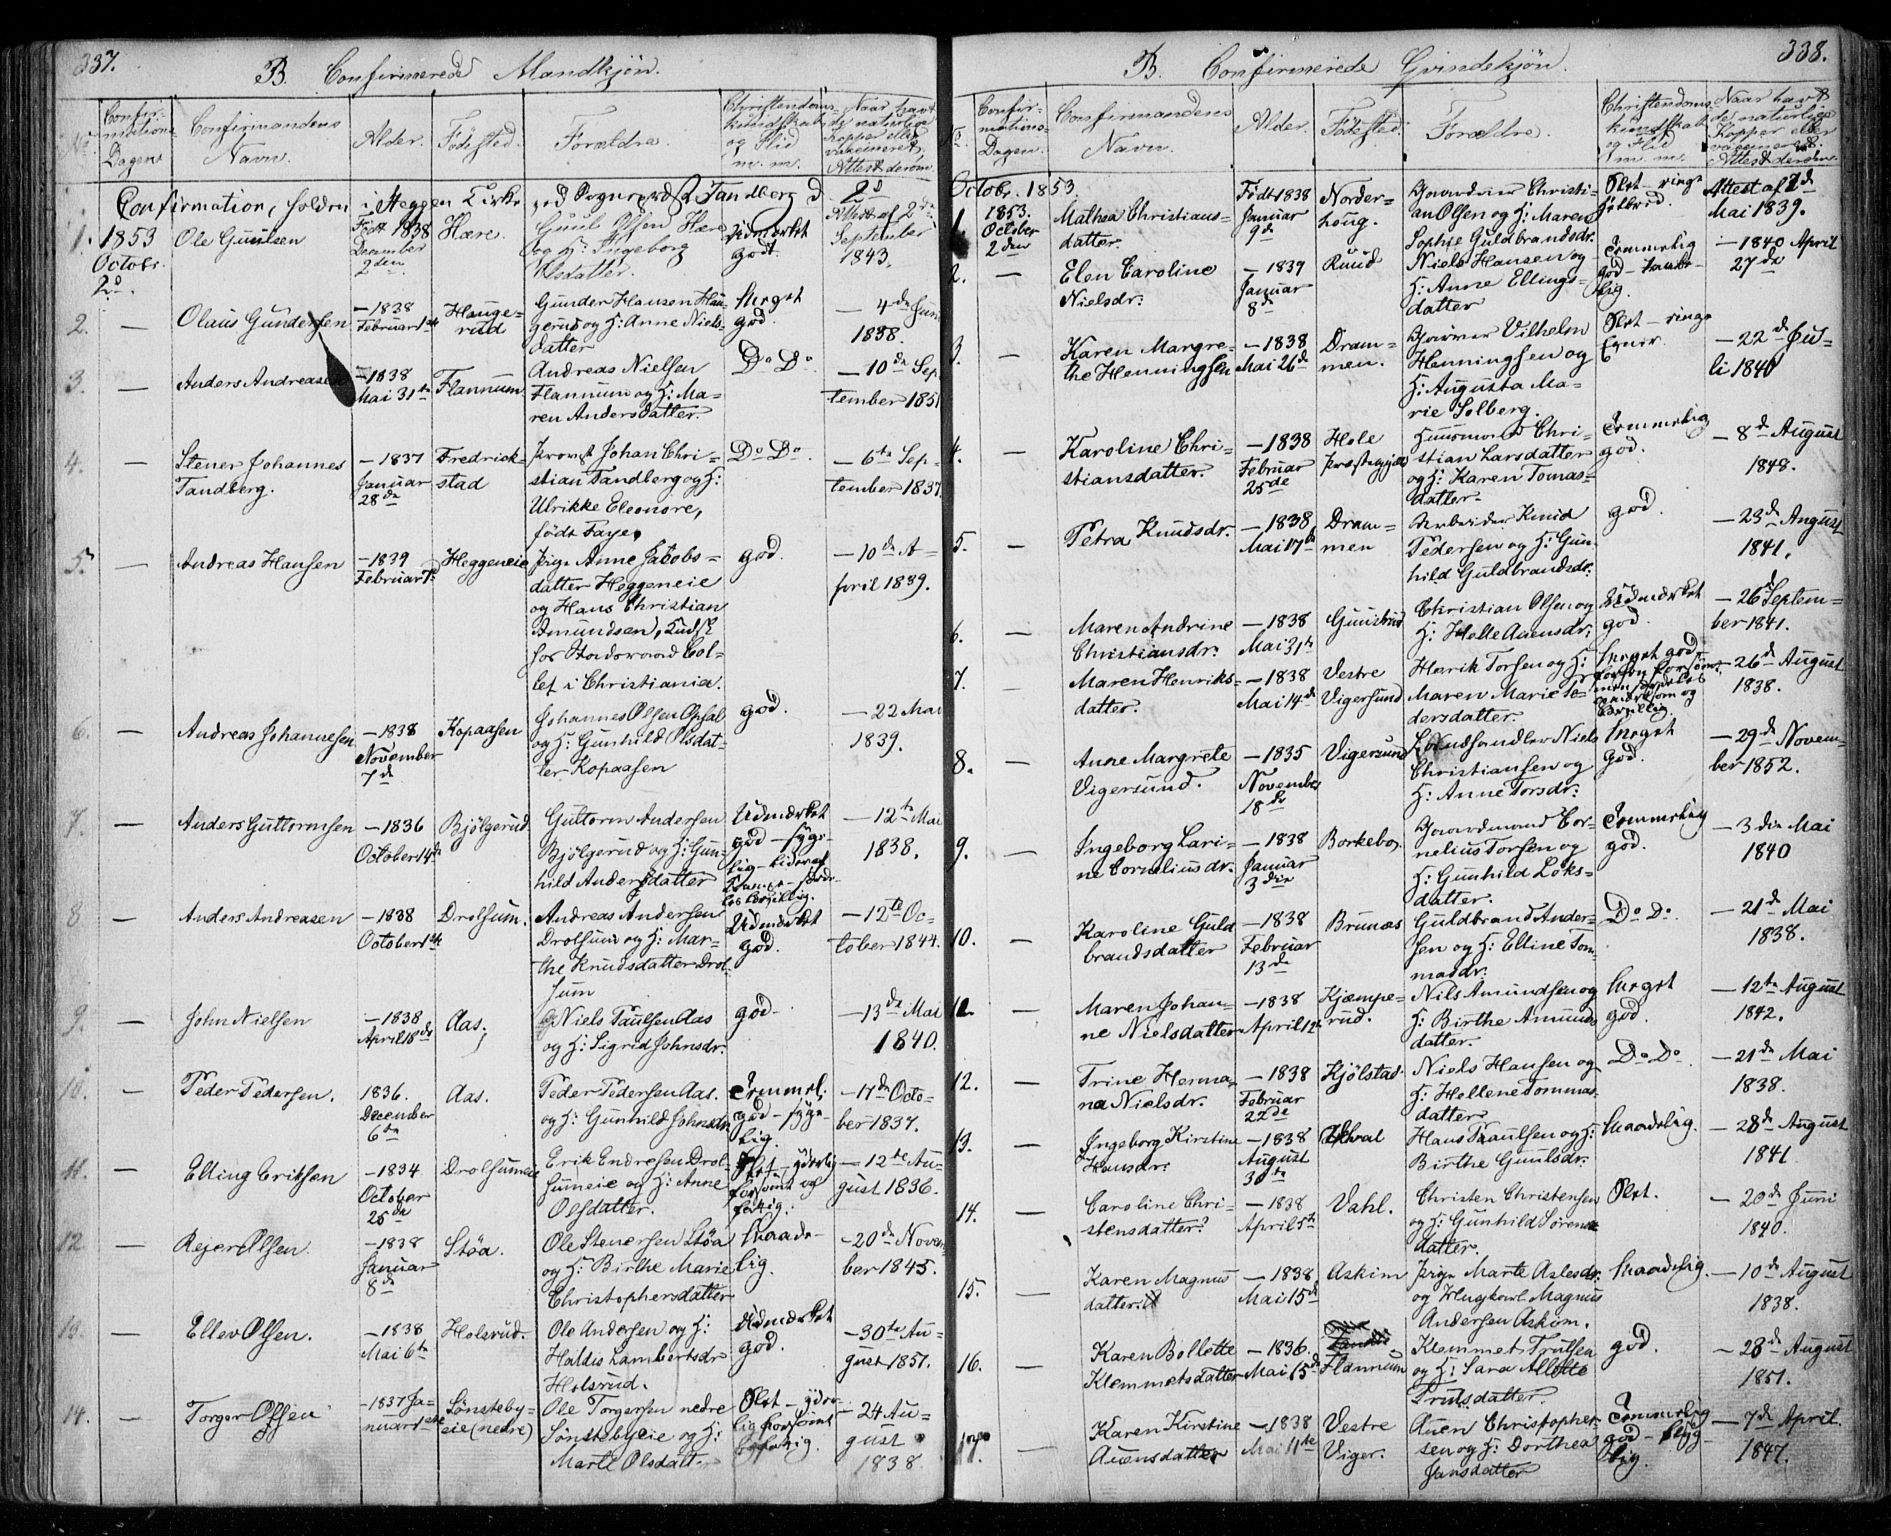 337.
B Confirmerede Mandkjøn.
No
Confirmations Dagen.
Confirmandens Navn.
Alder.
Fødested.
Forældre.
Christendoms-kundskab og Flid m. m.
Naar havt de naturlige Kopper eller vaccineret. Attest derom
Confirmation, holden i Heggen Kirke ved Tandberg d 2d
1. 1853 Octobr. 2d.
Ole Guulsen
Født 1838 December 2den
Hære.
Guul Olsen Hære og H: Ingeborg Olsdatter.
Udmærket godt.
Attest af 2den September 1843.
2. —
Olaus Gundersen
— 1838 Februar 1ste
Haugerud
Gunder Hansen Haugerud og H: Anne Nielsdatter
Meget god.
— 4de Juni 1838.
3. —
Anders Andreasen
— 1838 Mai 31te
Flannum
Andreas Nielsen Flannum og H: Maren Andersdatter.
Do Do
— 10de September 1851
4. —
Stener Johannes Tandberg.
— 1837 Januar 28de
Fredrikstad
Provst Johan Christian Tandberg og H: Ulrikke Eleonore, født Faye,
Do Do.
— 6te September 1837.
5. —
Andreas Hansen
— 1839 Februar
Heggeneie
Pige Anne Jacobsdatter Heggeneie og Hans Christian Amundsen, Kudsk hos Collet i Christiania.
god.
— 10de April 1839.
6. —
Andreas Johannesen
— 1838 November 7de
Kopaasen
Johannes Olsen Opsal og H: Gunhild Olsdatter Kopaasen
god.
— 22 Mai 1839.
7. —
Anders Guttormsen
— 1836 October 14de
Bjölgerud
Guttorm Andersen Bjölgerud og H: Gunhild Andersdatter
Udmærket god — sygelig —
— 12te Mai 1838.
8 —
Anders Andreasen
— 1838 October 1ste
Drolsum.
Andreas Andersen Drolsum og H: Marthe Knudsdatter Drolsum
Udmærket god.
— 12te October 1844.
9. —
John Nielsen
— 1838 April 18de
Aas;
Niels Paulsen Aas og H: Sigrid Johnsdr.
god.
— 13de Mai 1840.
10. —
Peder Pedersen.
1836. December 6te
Aas.
Peder Pedersen Aas. og H: Gunhild Johnsdtr
Temmel. god — sygelig.
— 17de October 1837.
11. —
Elling Eriksen
— 1834 October 25de
Drolsumeie
Erik Endresen Drolsumeie og H: Anne Olsdatter.
Slet — yderlig forsømt og fattig.
— 12te August 1836.
12. —
Rejer Olsen.
— 1838 Januar 8de
Støa.
Ole Stenersen Støa og H: Birthe Marie Christophersdatter
Maadelig.
— 20de November 1845.
13. —
Ellev Olsen.
— 1838 Mai 6te
Holsrud.
Ole Andersen og H: Haldis Lambertsdr Holsrud.
Udmærket god.
— 30te August 1851.
14. —
Torger Olsen
— 1837 Januar 1ste
Sønstebyeie (nedre)
Ole Torgersen nedre Sønstebyeie og H: Marte Olsdatt
Slet — yderlig forsømt og fattig.
— 24 August 1838
338.
B. Confirmerede Qvindekjøn.
No.
Confirmations Dagen.
Confirmandens Navn.
Alder.
Fødested.
Forældre.
Christendoms-kundskab og Flid m. m.
Naar havt de naturlige Kopper eller vaccineret. Attest derom.
Octobr. 1853.
1. 1853. October 2den
Mathea Christiansdatter.
Født 1838 Januar 9de
Norderhoug.
Gaardeier Christian Olsen og H: Maren Sophie Guldbrandsdr.
Slet — ringe
Attest af 2de Mai 1839.
2. —
Elen Caroline Nielsdr:
— 1839 Januar 8de
Ruud
Niels Hansen og H: Anne Ellingsdatter
Temmelig god —
— 1840 April 27de
3. —
Karen Margrethe Henningsen
— 1838 Mai 26de
Drammen.
Vilhelm Henningsen og H: Augusta Marie Solberg.
Slet — ringe Evner.
— 22de Juli 1840
4. —
Karoline Christiansdatter.
— 1838 Februar 25de
Hole Præstegjæld
Huusmand Christian Larsdatter og H: Karen Tomasdatter.
Temmelig god.
— 8de August 1848.
5. —
Petra Knudsdr.
— 1838 Mai 17de
Drammen
Arbeider Knud Pedersen og H: Gunhild Guldbrandsdr.
god.
— 23de August 1841.
6. —
Maren Andrine Christiansdr.
— 1838 Mai 31te
Christian Olsen og H: Helle Auensdr;
Udmærket god.
— 26de September 1841.
7. —
Maren Henriksdatter.
— 1838 Mai 14de
Vestre Vigersund
Henrik Torsen og H: Maren Marie Pedersdatter.
Meget god
— 26de August 1838.
8. —
Anne Margrete Vigersund.
— 1835 November 18de
Vigersund
Landhandler Niels Christiansen og H: Anne Torsdr:
Meget god.
— 29de November 1852.
9. —
Ingeborg Larine Corneliusdr.
— 1838 Januar 3die
Borkebo.
Gaardmand Cornelius Torsen og H: Gunhild Loksdatter.
Temmelig god.
— 3die Mai 1840
10. —
Karoline Guldbrandsdatter
— 1838 Februar 13de
Brunæs
Guldbrand Andersen og H: Elline Tommasdr:
Do Do.
— 21de Mai 1838.
11. —
Maren Johanne Nielsdatter
— 1838 April 12te
Kjæmperud.
Nils Amundsen og H: Birthe Amundsdatter.
Meget god.
— 12te August 1842.
12. —
Trine Hermana Nielsdr.
— 1838 Februar 22de
Kjölstad
Niels Hansen og H: Hellene Tommasdatter
Do Do
— 21de Mai 1838.
13. —
Ingeborg Kirstine Hansdr.
— 1838 August 30te
Hans Paulsen og H: Birthe Guulsdr.
Maadelig.
— 28de August 1841.
14. —
Caroline Christensdatter.
— 1838 April 5te
Vahl.
Christen Christensen og H: Gunhild Sørensdatter.
Slet.
— 20de Juni 1840.
15. —
Karen Magnusdatter.
— 1838 Mai 15de
Askim
Pige Marte Aslesdr. og Ungkarl Magnus Andersen Askim.
Maadelig.
— 10de August 1838.
16. —
Karen Bollette Klemmetsdatter
— 1836 Mai 15de
Flannum
Klemmet Trulsen og H: Sara Allette Trulsdatter.
god.
— 28de August 1851.
17. —
Karen Kirstine Auensdatter
— 1838 Mai 11te
Vestre Viger.
Auen Christophersen og H: Dorthea Jansdatter
Temmelig god — sygelig.
— 7de April 1847.